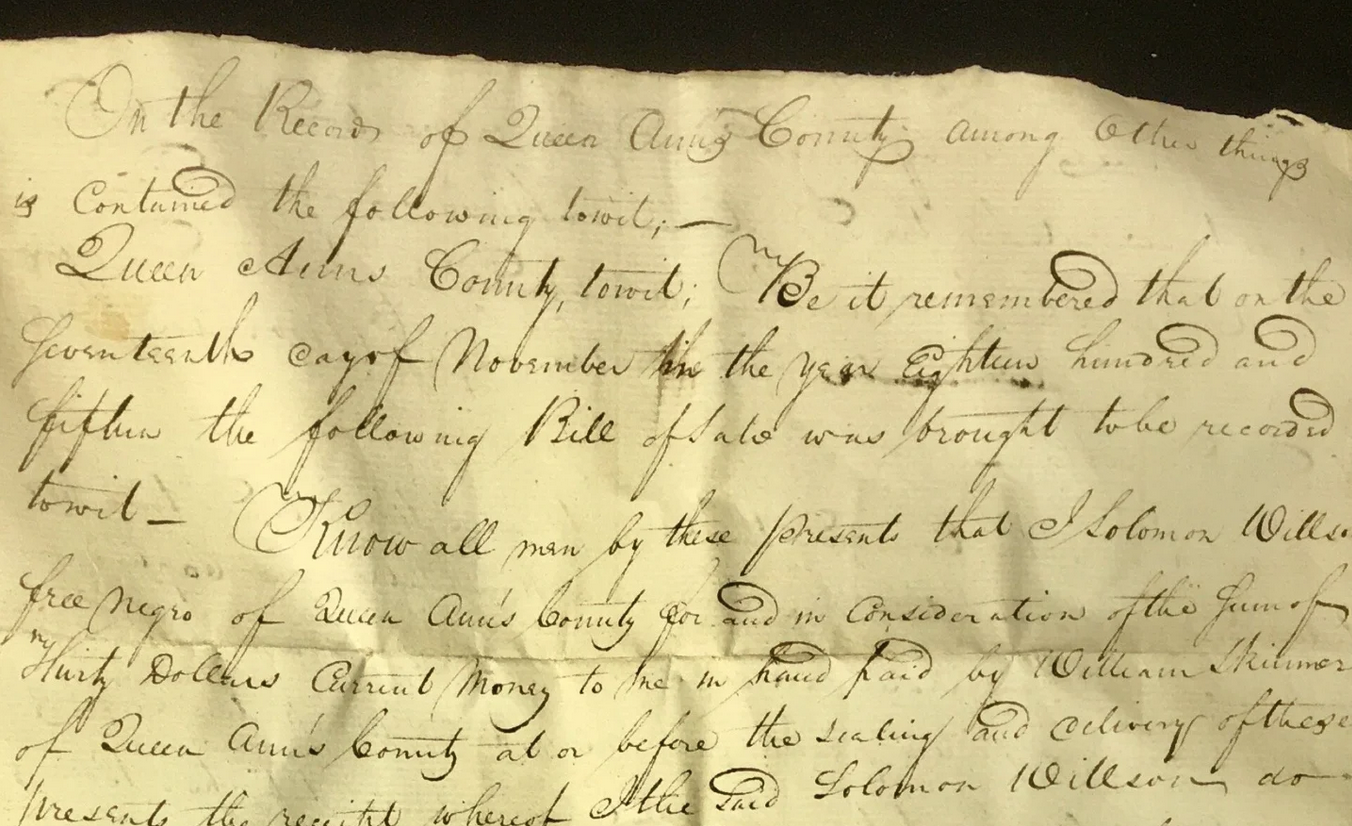 On the Records of Queen Ann's County among Other things
is Contained the following towit; —
Queen Anns County, towit; Be it remembered that on the
Seventeenth day of November in the year Eighteen hundred and
fifteen the following Bill of Sale was brought to be recorded
towit — Know all men by these presents that I Solomon Willson
free Negro of Queen Ann's County for and in Consideration of the Sum of
thirty Dollars Current Money to me in hand paid by William Skinner
of Queen Ann's County at or before the sealing and delivery of these
presents the receipt whereof I the Said Solomon Willson do